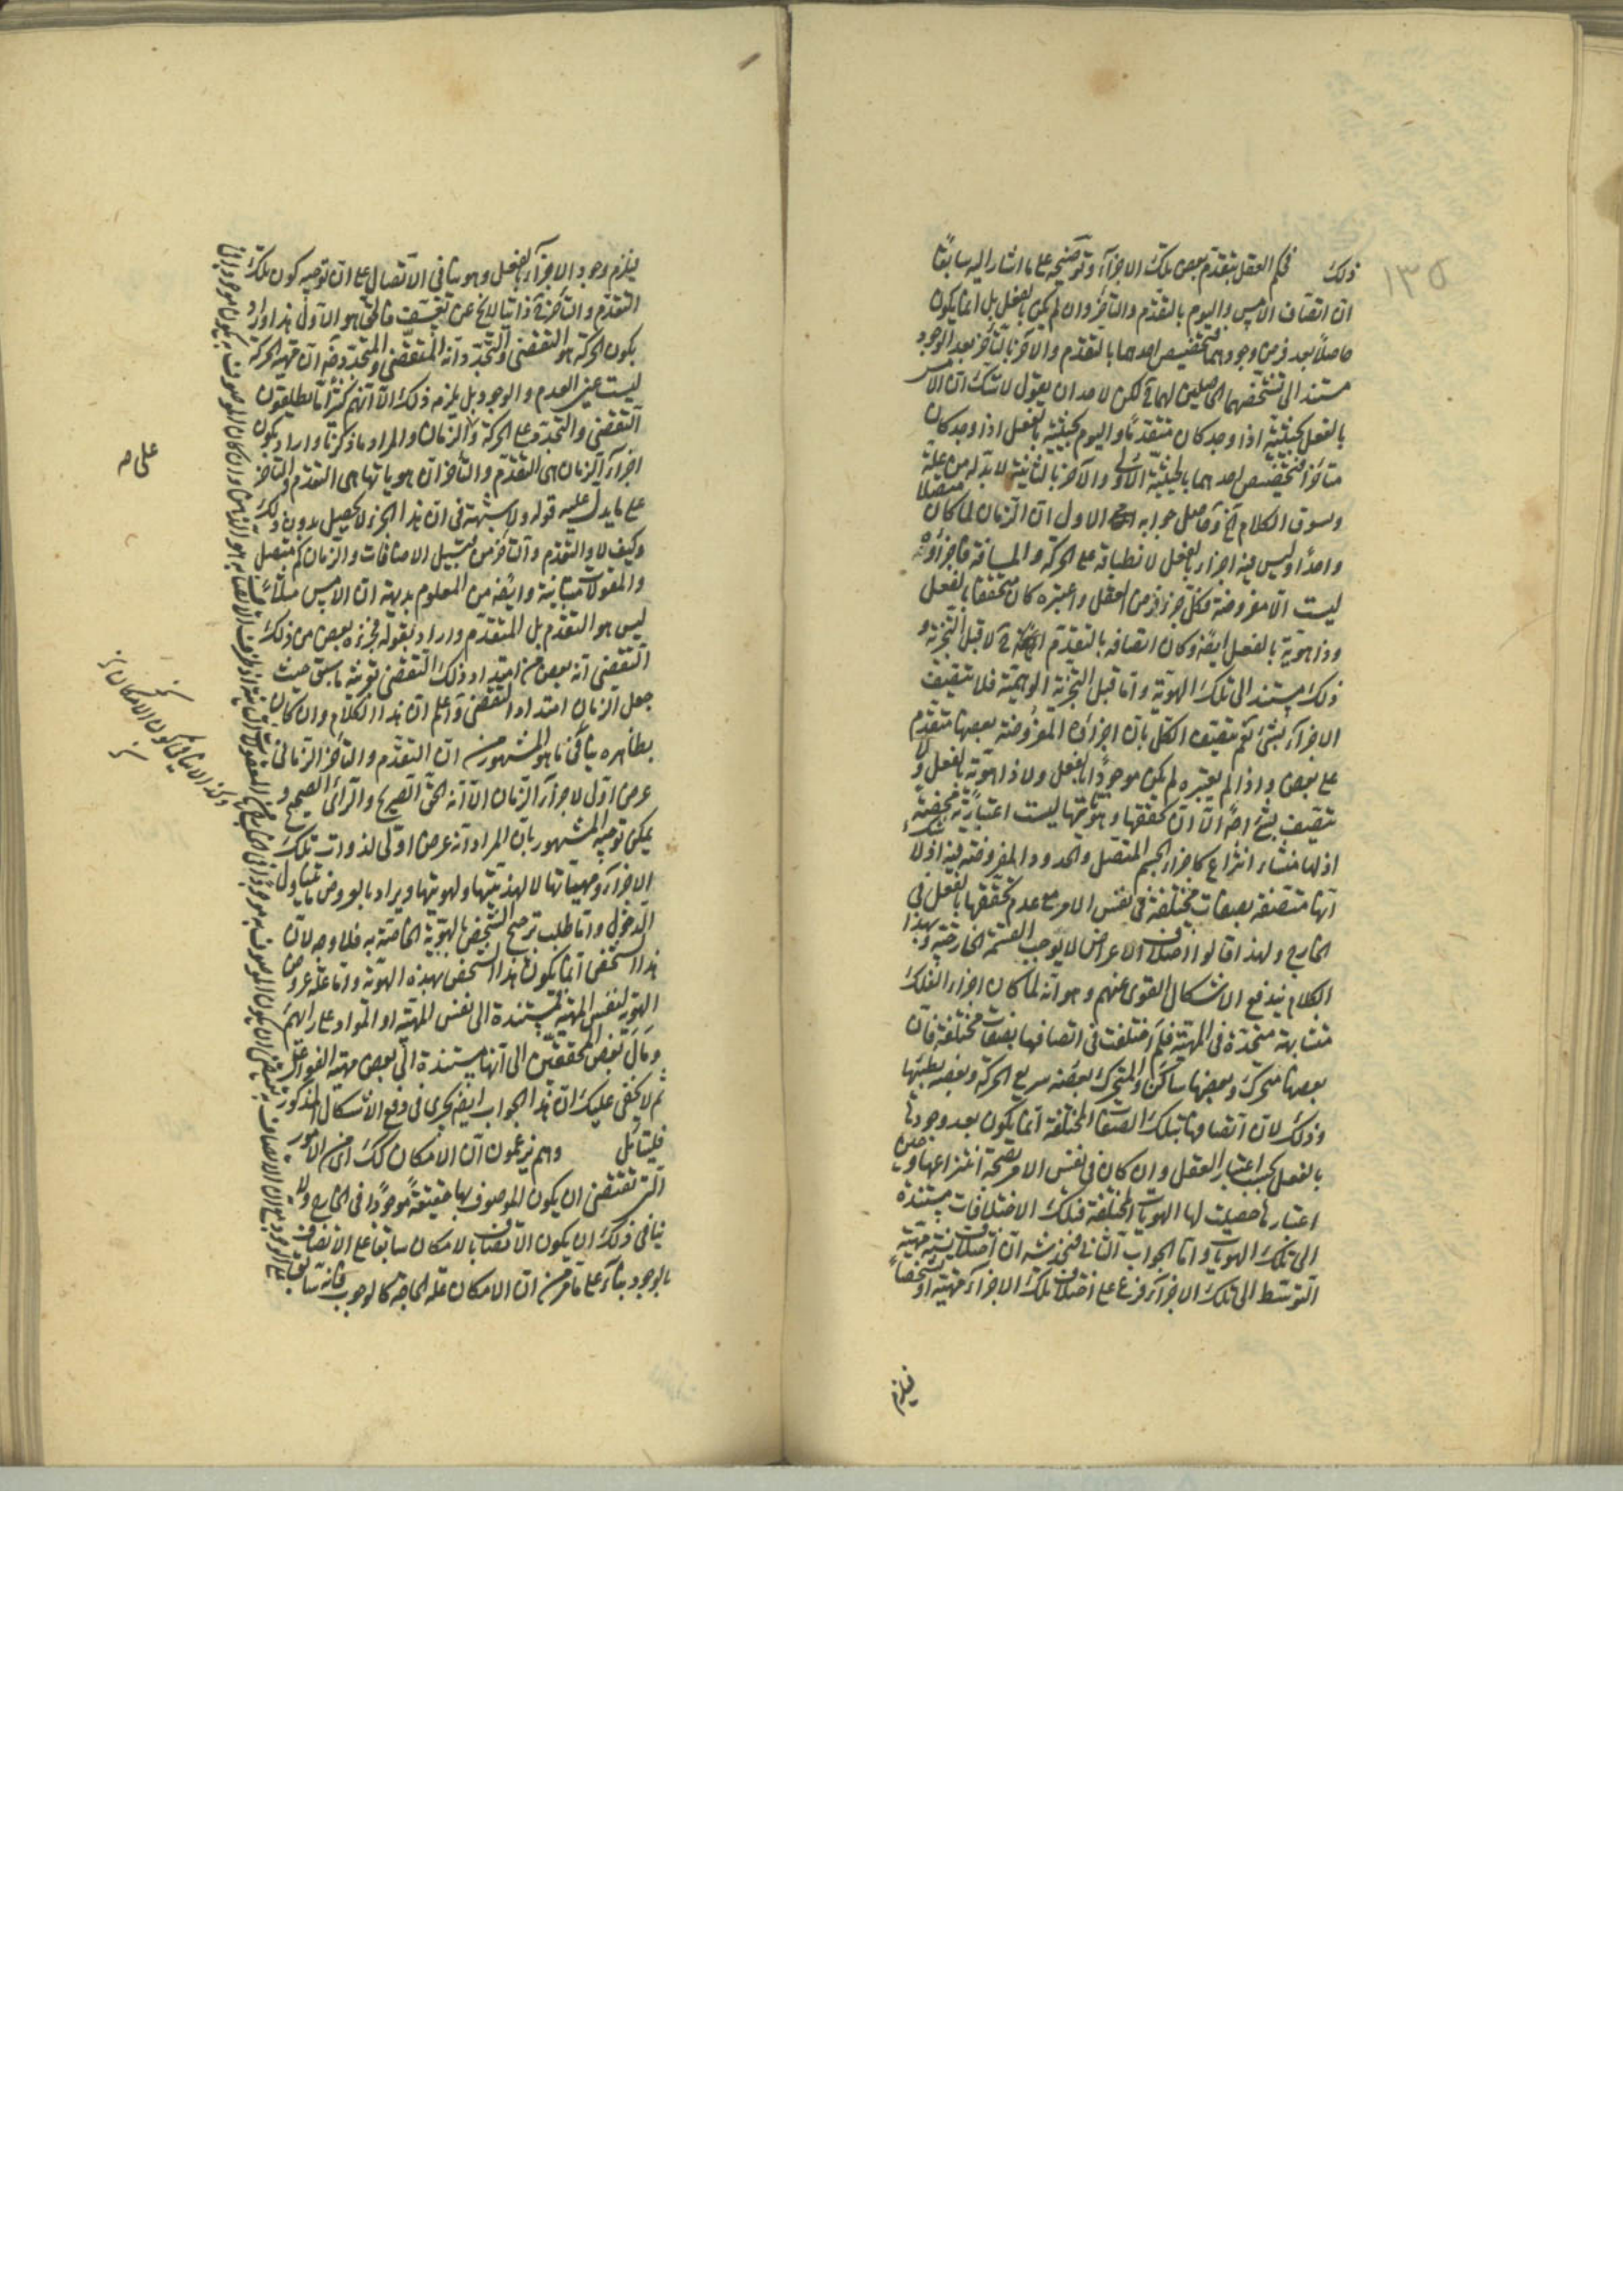 ١٣٥
ذلك فحكم العقل بتقدم بعض تلك الاجزاء وتوضيحه على ما اشار اليه سابقًا
ان اتصاف الامس واليوم بالتقدم والتأخر وان لم يكن بالفعل بل انما يكون
حاصلًا بعد فرض وجودهما فتخصيص احدهما بالتقدم والاخر بالتأخر بعد الوجود
مستند الى تشخصهما الحاصلين لهما لكن لاحد ان يقول لا شك ان الامس
بالفعل بحيثية اذا وجد كان متقدمًا واليوم بحيثية بالفعل اذا وجد كان
متأخرًا فتخصيص احدهما بالحيثية الاولى والآخر بالثانية لا بد له من علة
ويسوق الكلام الخ وحاصل جوابه الاول ان الزمان لما كان متصلًا
واحدًا وليس فيه اجزاء بالفعل لانطباقه على الحركة والمسافة فاجزاؤه
ليست الا مفروضة فكل جزء فرض العقل واعتبره كان متحققًا بالفعل
وذا هوية بالفعل ايضًا وكان اتصافه بالتقدم لا قبل التجزية و
ذلك يستند الى تلك الهوية واما قبل التجزية الوهمية فلا يتصف
الاجزاء بشيء نعم يتصف الكل بان اجزاءه المفروضة بعضها متقدم
على بعض واذا لم يعتبره لم يكن موجودًا بالفعل ولا ذا هوية بالفعل ولا
يتصف بشيء اصلًا الا ان تحققها وهويتها ليست اعتبارية محضة
اذ لها منشاء انتزاع كاجزاء الجسم المتصل والحدود المفروضة فيه اذ لا شك
انها متصفة بصفات مختلفة في نفس الامر مع عدم تحققها بالفعل في
الخارج ولهذا قالوا اختلاف الاعراض لا يوجب القسمة الخارجية وبهذا
الكلام يندفع الاشكال القوى عنهم وهو انه لما كان اجزاء الفلك
متشابهة متحدة في المهية فلم اختلفت في اتصافها بصفات مختلفة فان
بعضها متحرك وبعضها ساكن والمتحرك بعضه سريع الحركة وبعضه بطيئها
وذلك لان اتصافها بتلك الصفات المختلفة انما يكون بعد وجودها
بالفعل بحسب اعتبار العقل وان كان في نفس الامر بصحة انتزاعها وحين
اعتبارها حصلت لها الهويات المختلفة فتلك الاختلافات مستندة
الى تلك الهويات واما الجواب الثاني فيخدشه ان اختلاف نسبة مهية
التوسط الى تلك الاجزاء فرع على اختلاف تلك الاجزاء مهية او تشخصًا
فيلزم
فيلزم وجود الاجزاء بالفعل وهو ينافي الاتصال على ان توجيه كون تلك
التقدم والتأخر ذاتيا لا يخ عن تعسف فالحق هو الاول هذا واراد
بكون الحركة هو التقضى والتجدد انه المتقضى والمتجدد ضرورة ان مهية الحركة
ليست عين العدم والوجود بل يلزمه ذلك الا انهم كثيرًا ما يطلقون
التقضى والتجدد على الحركة والزمان والمراد ما ذكرنا واراد بكون
اجزاء الزمان هى التقدم والتأخر ان هوياتها هى التقدم والتأخر
على ما يدل عليه قوله ولا شبهة في ان هذا الجزء لا يحصل بدون ذلك
وكيف لا والتقدم والتأخر من قبيل الاضافات والزمان كم متصل
والمقولات متباينة وايضًا من المعلوم بديهة ان الامس مثلًا
ليس هو التقدم بل المتقدم واراد بقوله فجزء بعض من ذلك
التقضى انه بعض من امتداد ذلك التقضى بقرينة ما سبق حيث
جعل الزمان امتداد التقضى واعلم ان هذا الكلام وان كان
بظاهره ينافي ما هو المشهور من ان التقدم والتأخر الزماني
عرض اولى لاجزاء الزمان الا انه الحق الصريح والرأى الصحيح و
يمكن توجيه المشهور بان المراد انه عرض اولى لذوات تلك
الاجزاء ومهياتها لا لهذيتها ولهويتها ويراد بالعروض ما يتناول
الدخول واما طلب ترجيح التشخص بالهوية الخاصة به فلا وجه لان
هذا الشخص انما يكون هذا الشخص بهذه الهوية واما علة عروض
الهوية لنفس المهية فمستندة الى نفس المهية او المواد على رايهم
ومال بعض المحققين الى انها مستندة الى بعض مهية الفواعل
ثم لا يخفى عليك ان هذا الجواب ايضًا يجرى في دفع الاشكال المذكور
فليتأمل وهم يزعمون ان الامكان كك اى من الامور
التى تقتضى ان يكون الموصوف بها حقيقة موجودًا في الخارج ولا
ينافي ذلك ان يكون الاتصاف بالامكان سابقا على الاتصاف
بالوجود بناء على ما تقرر من ان الامكان علة الحاجة كالوجوب فانه سابق